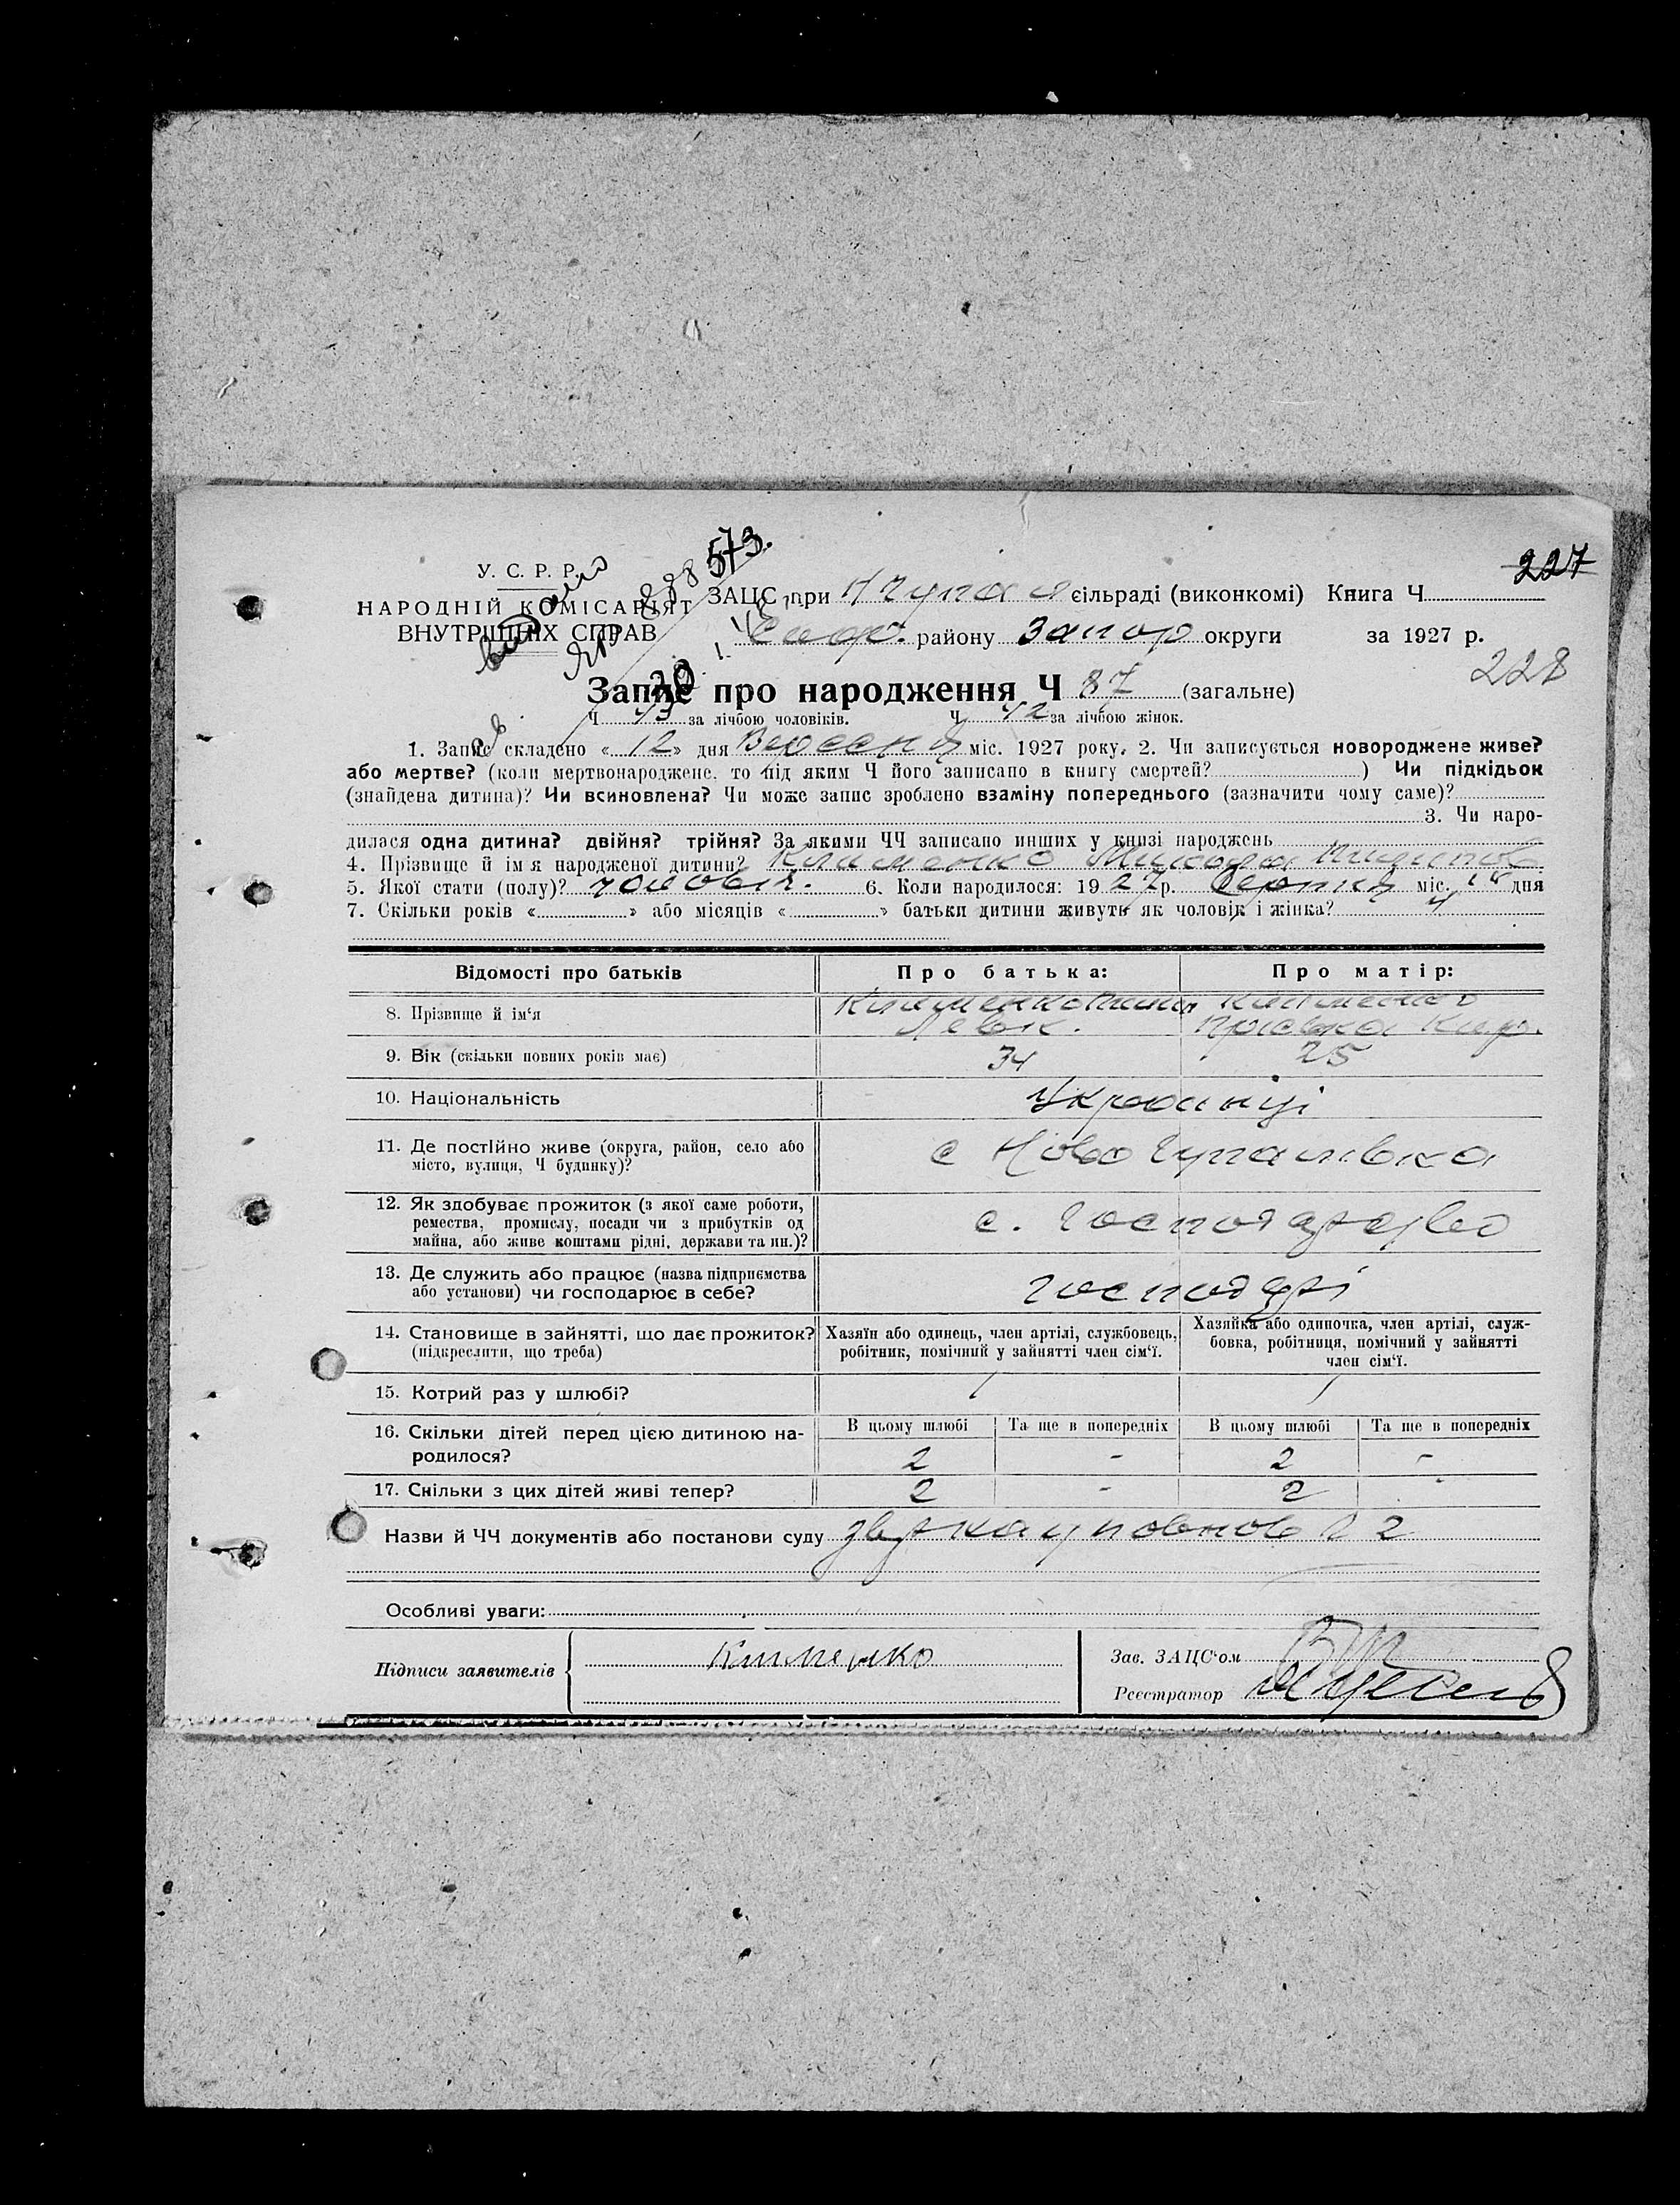 573.
227
У. С. Р. Р.
НАРОДНІЙ КОМІСАРІЯТ
ВНУТРІШНІХ СПРАВ
видано
ЗАЦС при Нчупал сільраді (виконкомі) Книга Ч
Соф. району Запор округи за 1927 р.
228
Запис про народження Ч 87 (загальне)
Ч за лічбою чоловіків. Ч 42 за лічбою жінок.
1. Запис складено « 12 » дня Вересня міс. 1927 року. 2. Чи записується новороджене живе?
або мертве? (коли мертвонароджене, то під яким Ч його записано в книгу смертей? ) Чи підкідьок
(знайдена дитина)? Чи всиновлена? Чи може запис зроблено взаміну попереднього (зазначити чому саме)?
3. Чи наро-
дилася одна дитина? двійня? трійня? За якими ЧЧ записано инших у книзі народжень
4. Прізвище й ім'я народженої дитини? Клименко Микола
5. Якої стати (полу)? чоловіч. 6. Коли народилося: 1927 р. Серпня міс. дня
7. Скільки років « » або місяців « » батьки дитини живуть як чоловік і жінка? 4
Відомості про батьків Про батька: Про матір:
8. Прізвище й ім'я Клименко Клименко
Левк. Приська Кир.
9. Вік (скільки повних років має) 34 25
10. Національність Українці
11. Де постійно живе (округа, район, село або
місто, вулиця, Ч будинку)? с Ново Гупалівка
12. Як здобуває прожиток (з якої саме роботи,
ремества, промислу, посади чи з прибутків од
майна, або живе коштами рідні, держави та ин.)? с. господарство
13. Де служить або працює (назва підприємства
або установи) чи господарює в себе? господарі
14. Становище в зайнятті, що дає прожиток?
(підкреслити, що треба)
Хазяїн або одинець, член артілі, службовець,
робітник, помічний у зайнятті член сім'ї.
Хазяйка або одиночка, член артілі, служ-
бовка, робітниця, помічний у зайнятті
член сім'ї.
15. Котрий раз у шлюбі? 1 1
В цьому шлюбі Та ще в попередніх В цьому шлюбі Та ще в попередніх
16. Скільки дітей перед цією дитиною на-
родилося? 2 - 2 -
17. Скільки з цих дітей живі тепер? 2 - 2
Назви й ЧЧ документів або постанови суду
Особливі уваги:
Підписи заявителів Клименко
Зав. ЗАЦС'ом
Реєстратор